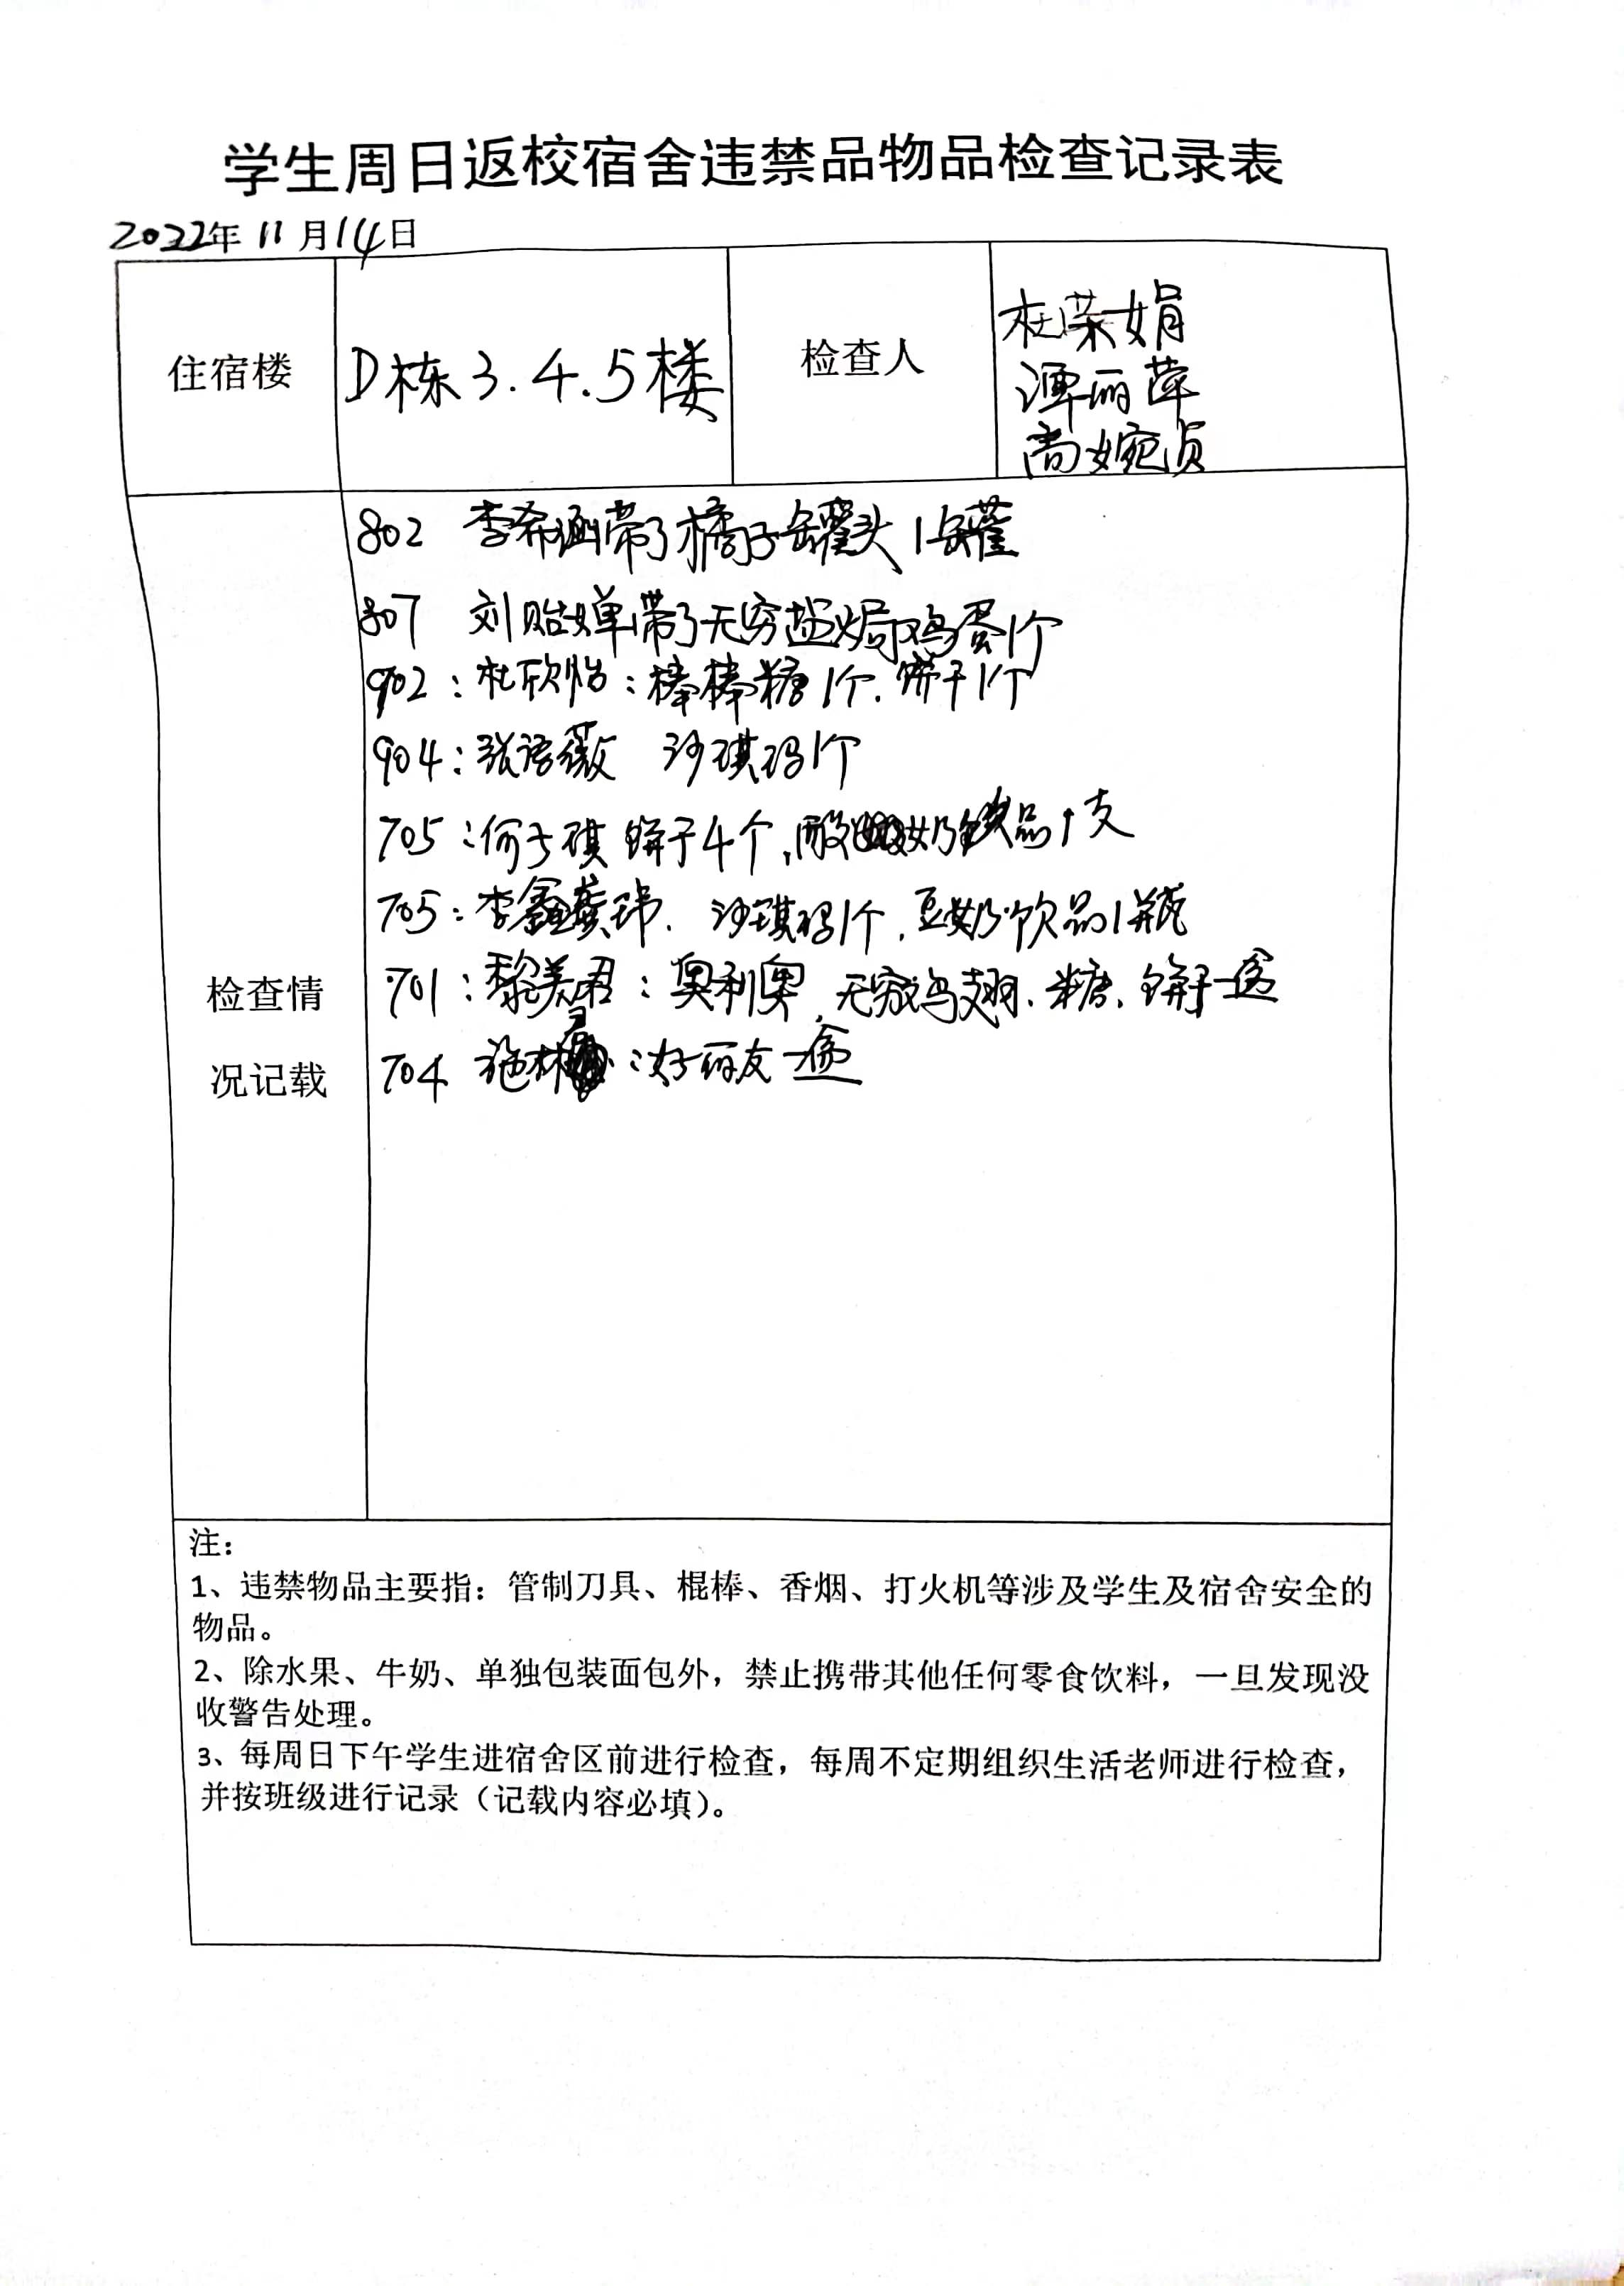 学生周日返校宿舍违禁品物品检查记录表
2022年 11 月14日
住宿楼
D栋3.4.5楼
检查人
杜荣娟
谭丽萍
尚婉贞
802 李希涵带了橘子罐头1罐
807 刘贻婵带了无穷盐焗鸡蛋1个
902：杜欣怡：棒棒糖1个.饼干1个
904：张语薇 沙琪玛1个
705：何子琪 饼干4个,酸奶饮品1支
705：李鑫 玮. 沙琪玛1个,豆奶饮品1瓶
701：黎美君：奥利奥,无穷鸡翅、糖、饼干一盒
704 施林 ：好丽友一盒
检查情
况记载
注：
1、违禁物品主要指：管制刀具、棍棒、香烟、打火机等涉及学生及宿舍安全的
物品。
2、除水果、牛奶、单独包装面包外，禁止携带其他任何零食饮料，一旦发现没
收警告处理。
3、每周日下午学生进宿舍区前进行检查，每周不定期组织生活老师进行检查，
并按班级进行记录（记载内容必填）。